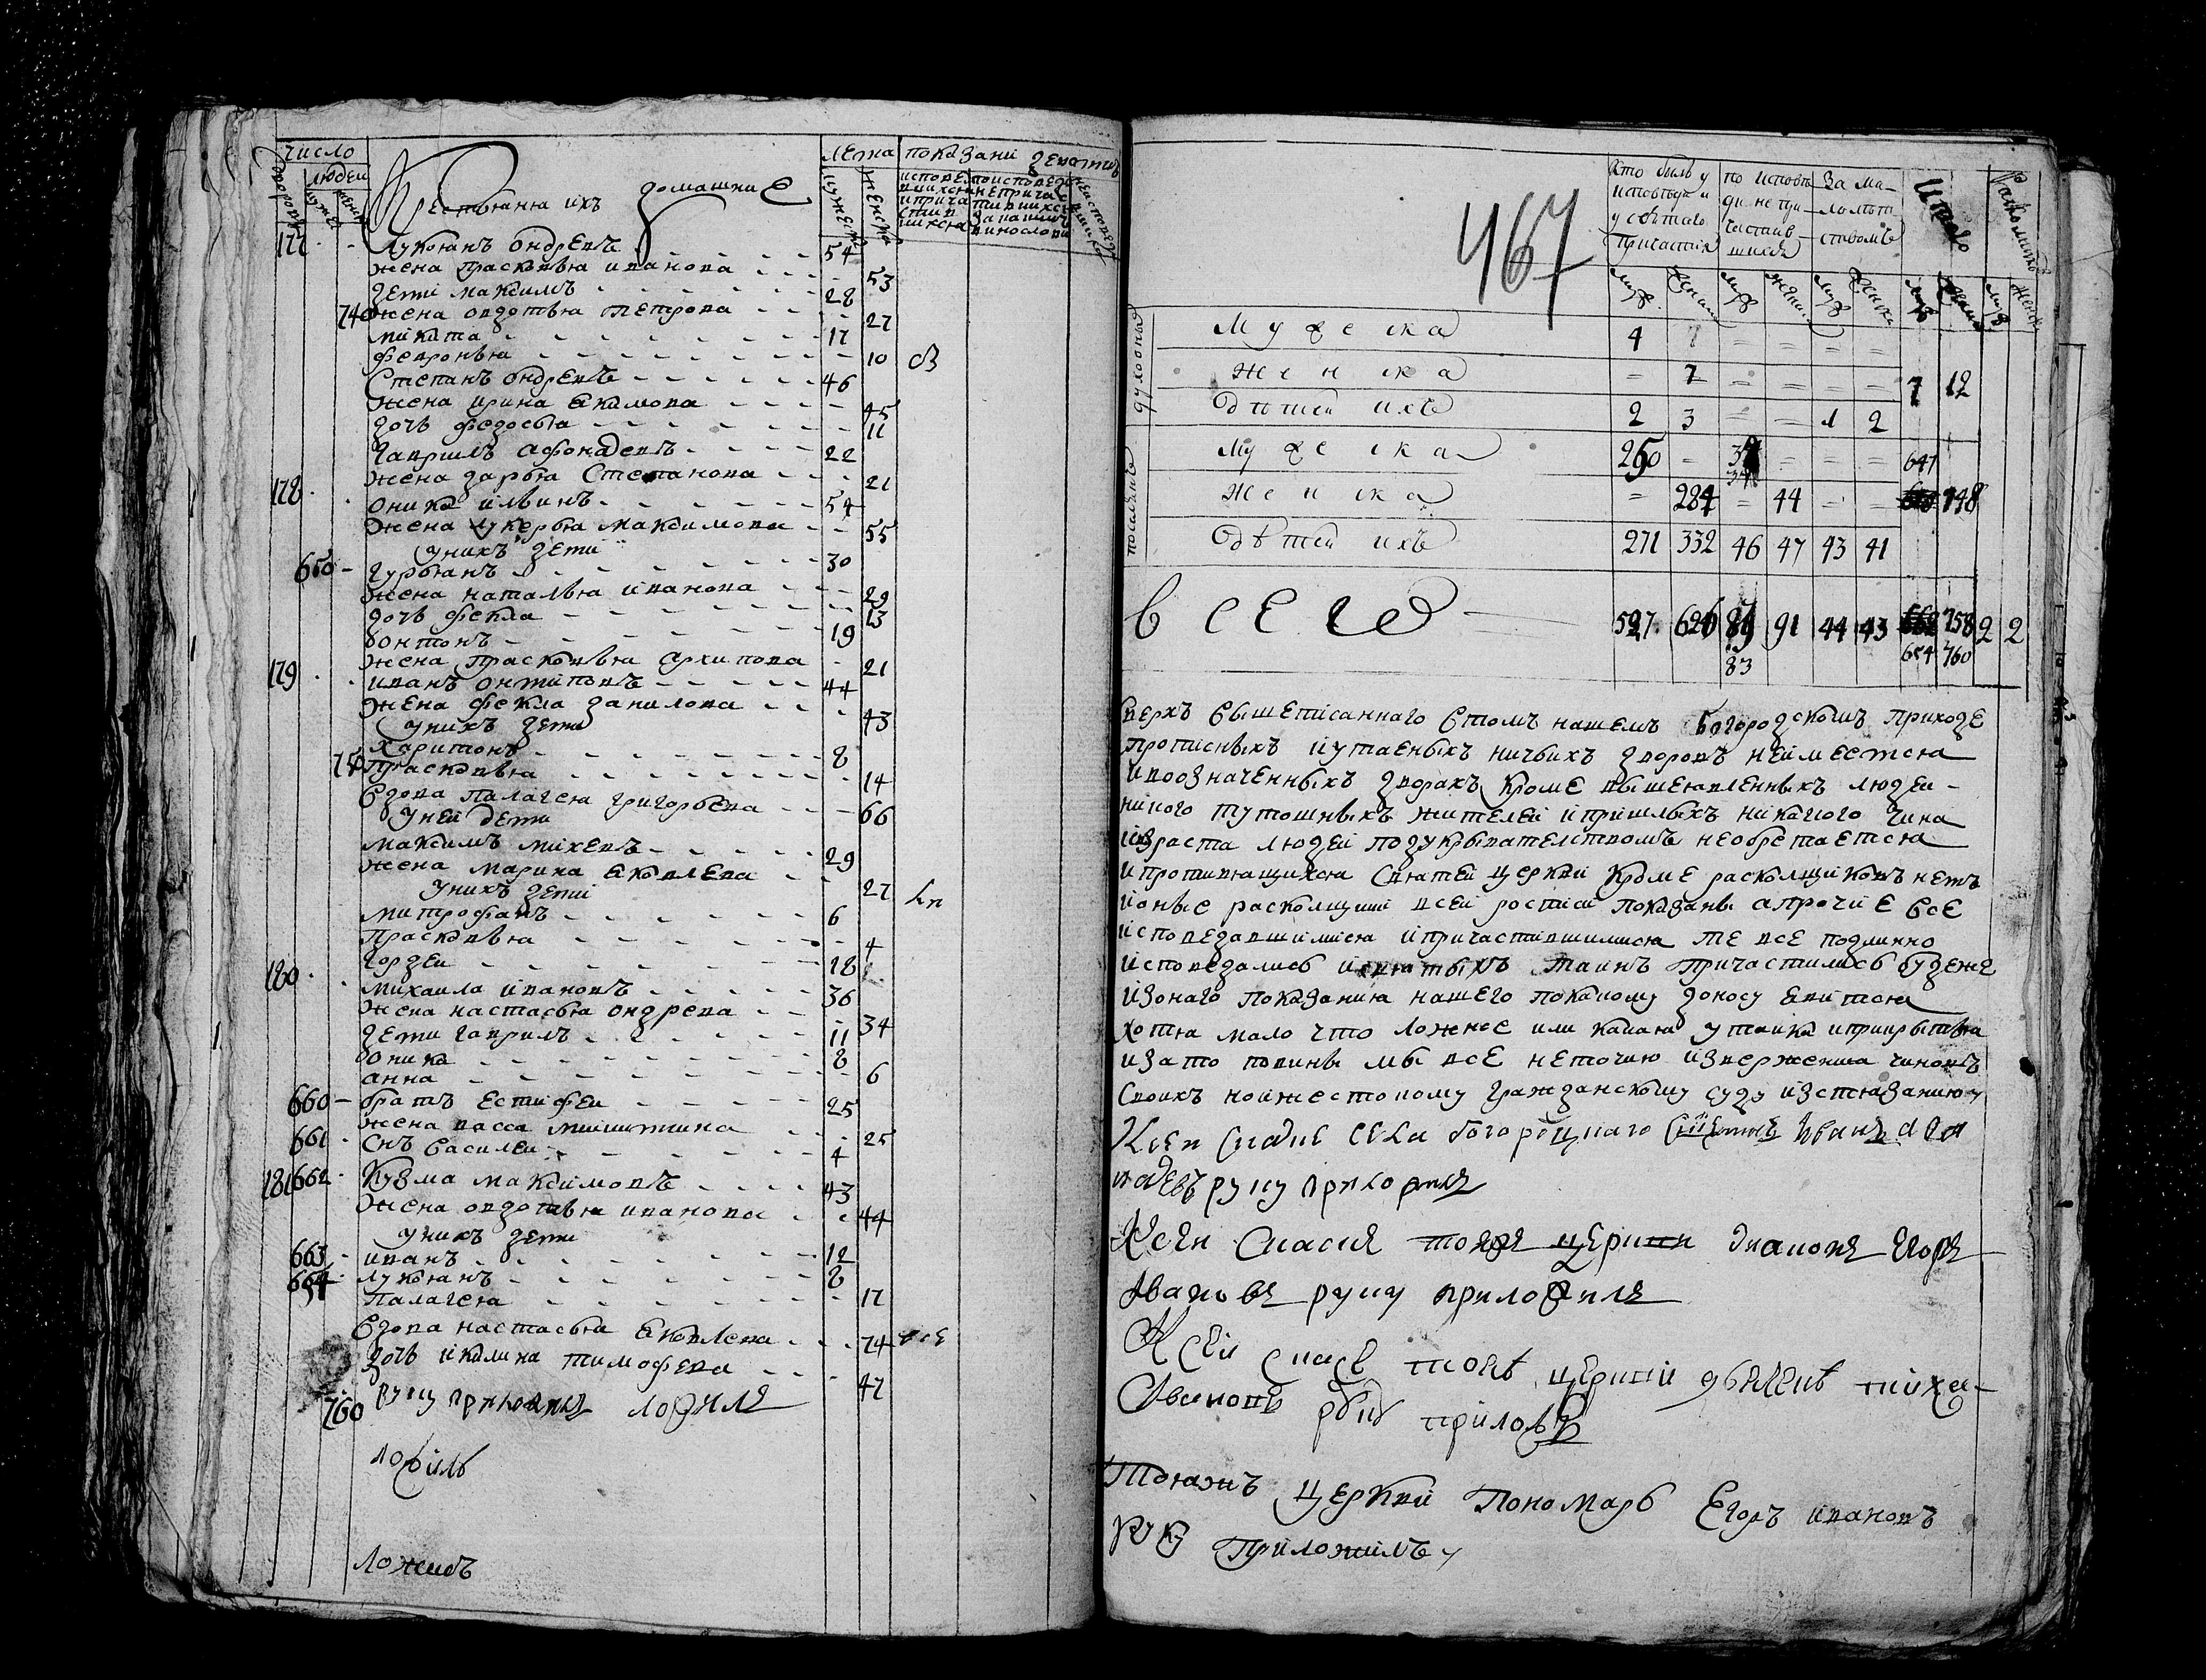 число
людей
лета показаниі
Крестьяня ихъ домашние
177 Лукоянъ Ондреевъ 54
жена Прасковья иванова 53
дети максимъ 28
740 жена овдотья Петрова 27
никита 17
февронья 10
Степанъ Ондреевъ 46
жена ирина Екимова 45
дочь федосья 11
Гаврилъ Афонасевъ 22
жена дарья Степанова 21
178 оника ильинъ 54
жена лукерья максимова 55
у нихъ дети
650 Гурьянъ 30
жена наталья иванова 29
дочь фекла 13
онтонъ 19
жена Прасковья Архипова 21
179 иванъ онтиповъ 44
жена фекла данилова 43
у нихъ дети
Харитонъ 8
750 Прасковья 14
вдова палагея григорьева 66
у ней дети
максимъ михеевъ 29
жена марина яковлева 27
у нихъ дети
митрофанъ 6
Прасковья 4
гордеи 18
180 михаила ивановъ 36
жена настасья ондреева 34
дети гаврилъ 11
оника 8
анна 6
660 братъ естифеи 25
жена васса 25
661 снъ василеи 4
181 662 Кузма максимовъ 43
жена овдотья иванова 44
у нихъ дети
663 иванъ 12
664 лукоянъ 8
палагея 17
вдова настасья яковлева 74
дочь акилина тимофева 47
760 руку приложилъ ложилъ
ложилъ
ложилъ
467
Кто былъ у исповеди и у святаго причастия
по исповеди не причастившихся
За малолетствомъ
Итого
мужеска 4 = = = =
женска = 7 = = = = 7 12
детей ихъ 2 3 = = 1 2
мужеска 250 = = = = 647
женска = 284 = 44 = = 748
детей ихъ 271 332 46 47 43 41
всего 527 626 89 91 44 43 758 2 2
83 654 760
сверхъ вышеписаннаго в томъ нашемъ Богородскомъ приходе
прописныхъ и утаеныхъ ничьихъ дворовъ не имеется
и в означенныхъ дворахъ кроме вышеявленныхъ людеи
иного тутошныхъ жителеи и пришлыхъ никакого чина
и возраста людеи под укрывателствомъ не обретается
и противящихся святеи церкви кроме расколщиковъ нетъ
и оные расколщики в сеи росписи показаны а прочие все
исповедавшимися и причастившимися те все подлинно
исповедались и святыхъ таинъ причастились буде же
из онаго показания нашего по какому доносу явится
хотя мало что ложное или какая утаика и прикрытья
и за то повины мы все не точию извержения чиновъ
своихъ но и жестокому гражданскому суду и истязанию
К сеи сказке села богородцкаго священникъ Иванъ
руку приложилъ
К сеи сказке тоя же церкви диаконъ Егоръ
Ивановъ руку приложилъ
К сеи сказке тоеъ церкви дьячекъ михаи
Ивановъ руку приложилъ
Тояжъ церкви Пономарь Егоръ ивановъ
руку Приложилъ